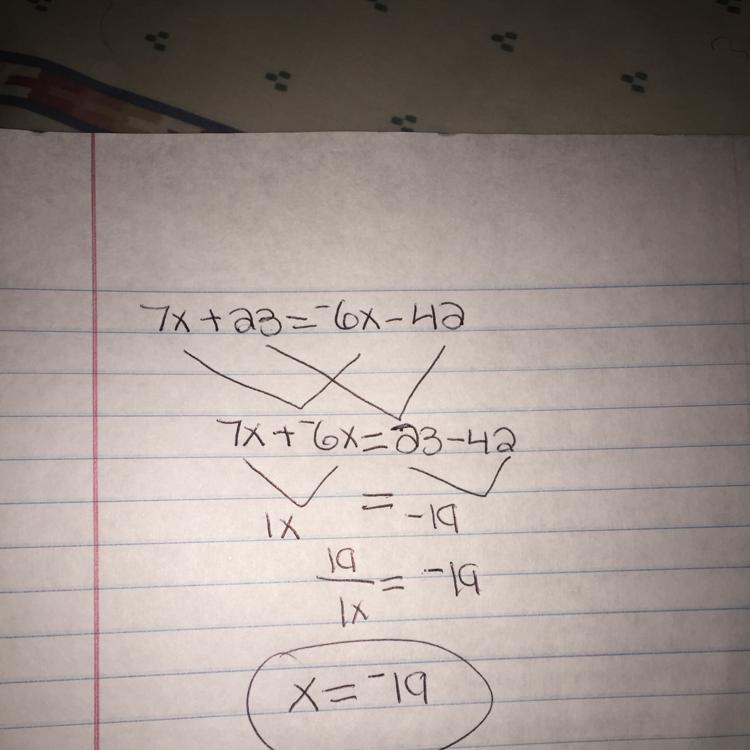 7x+23=⁻6x-42
7x+⁻6x=23-42
1x = -19
19
1x
= ⁻19
x=⁻19